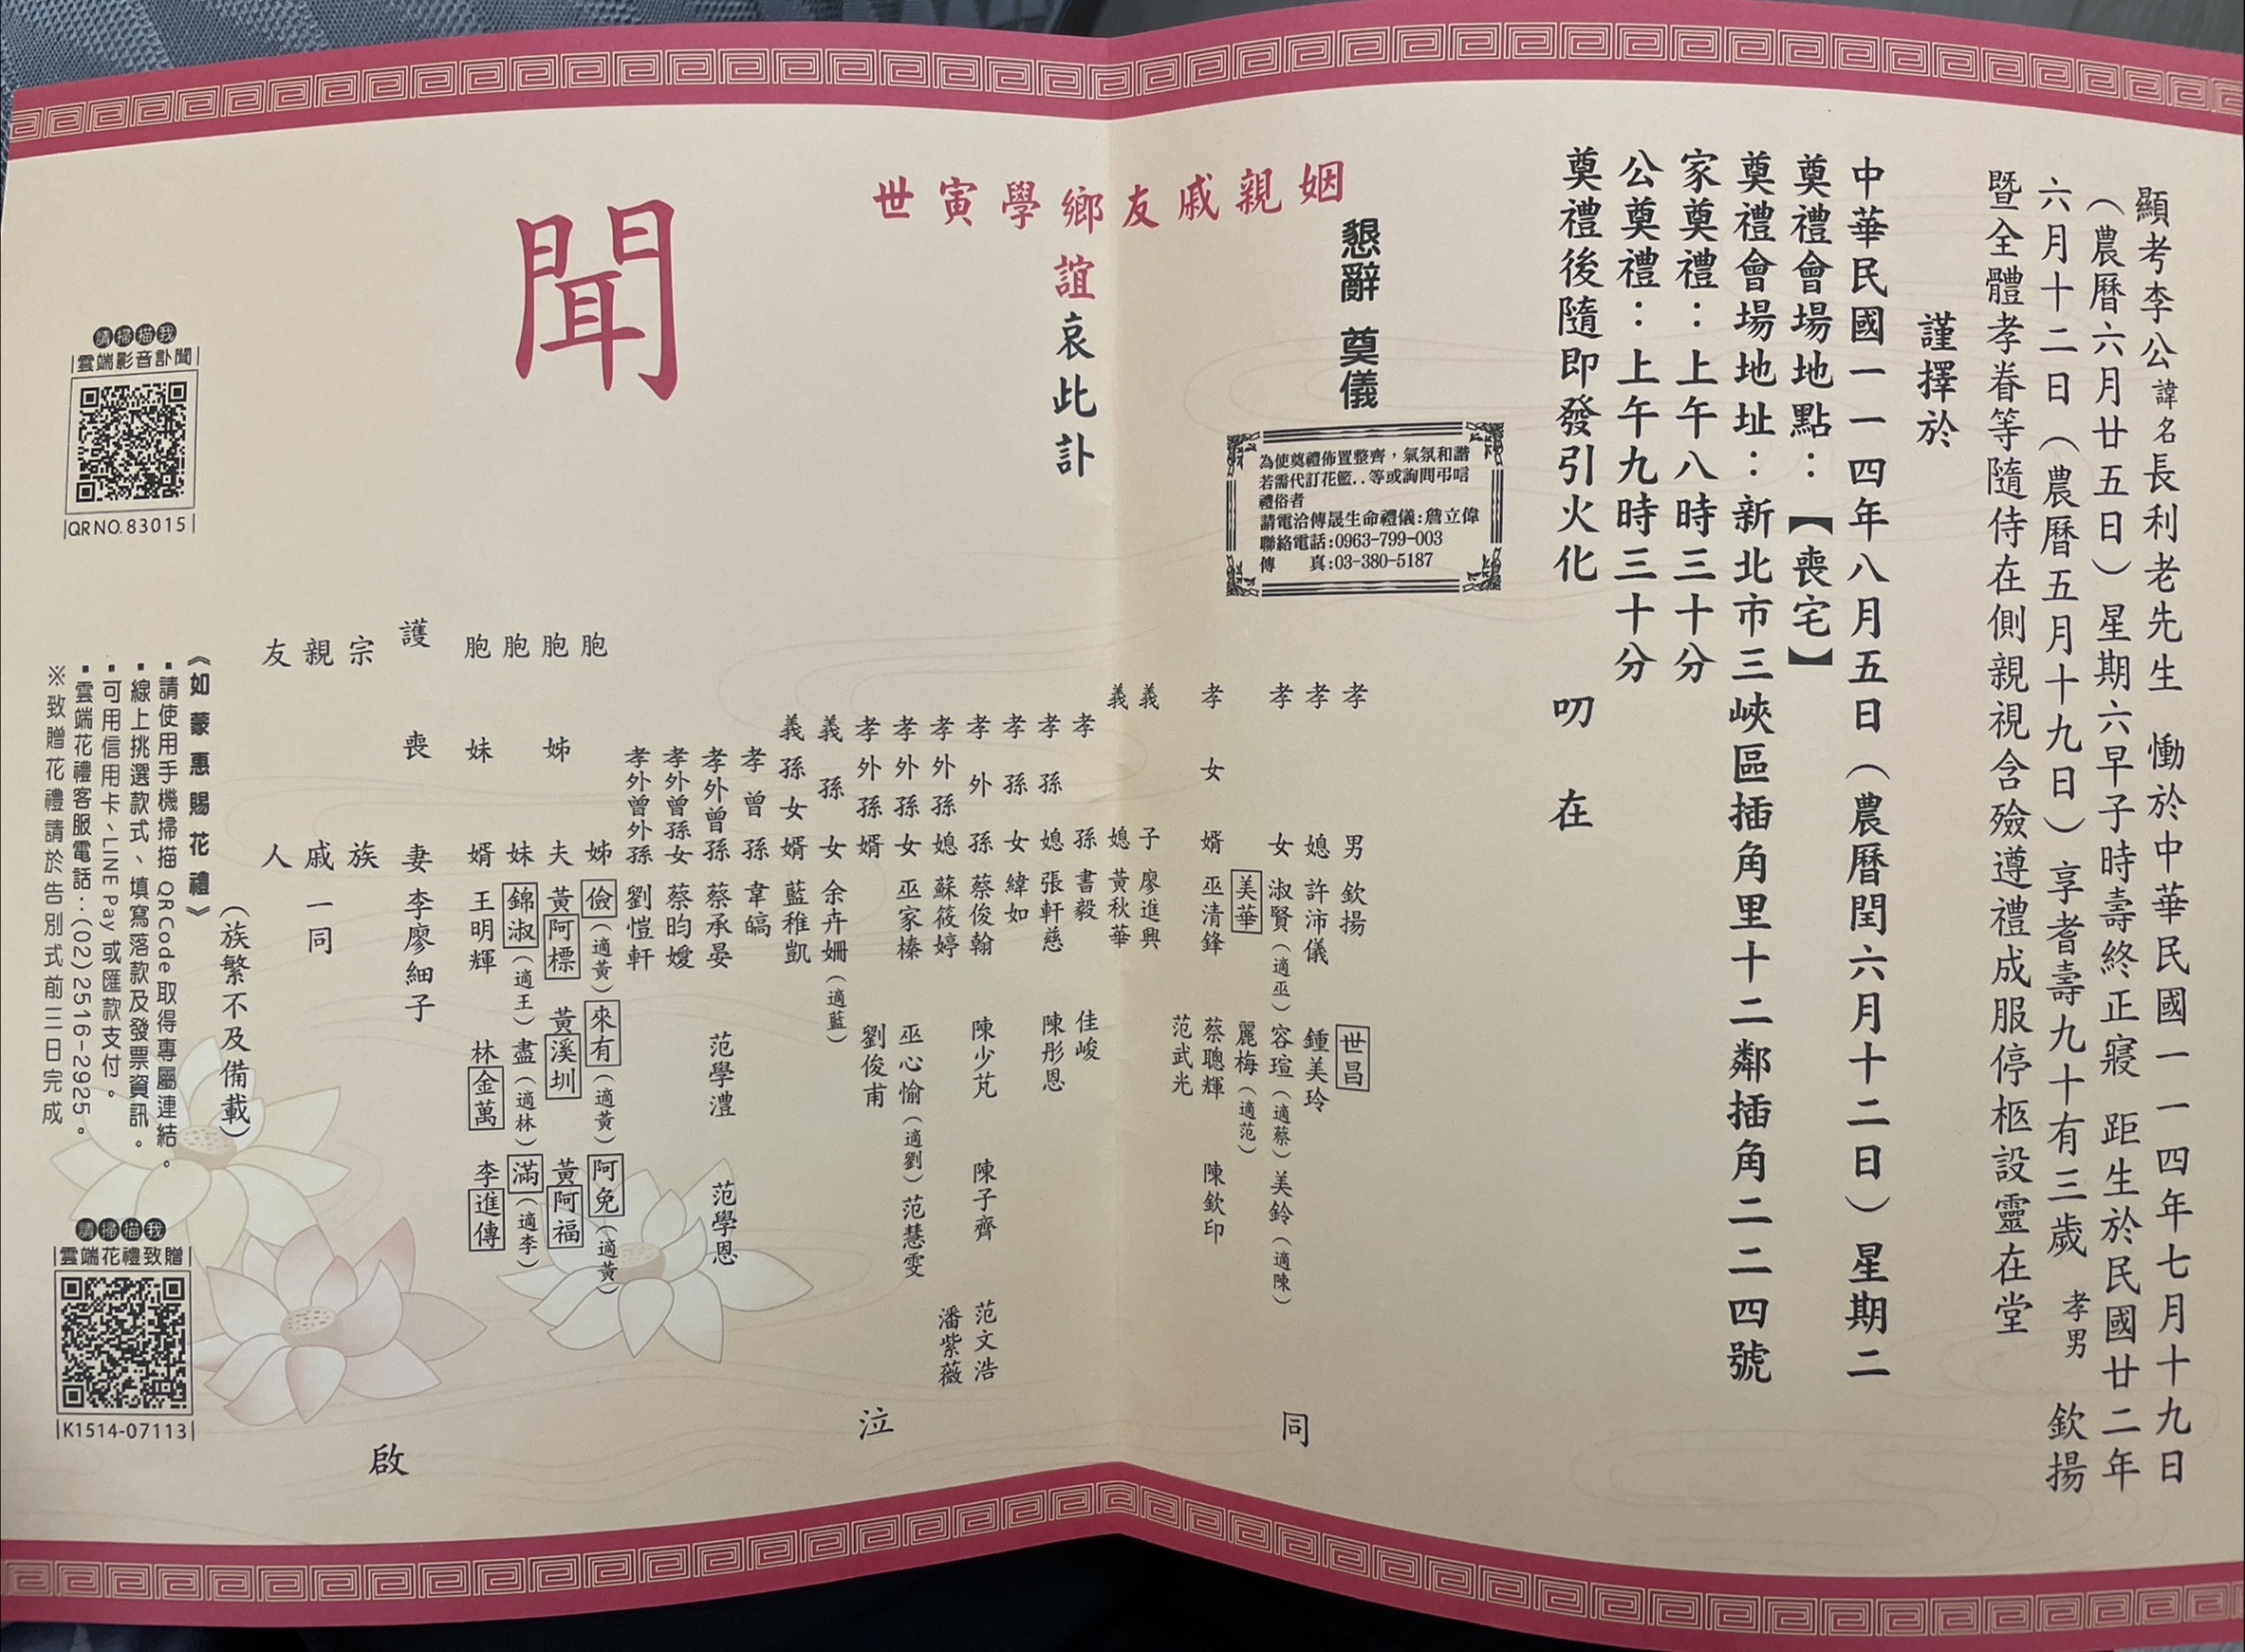 顯考李公諱名長利老先生 慟於中華民國一一四年七月十九日
（農曆六月廿五日）星期六早子時壽終正寢 距生於民國廿二年
六月十二日（農曆五月十九日）享耆壽九十有三歲 孝男 欽揚
暨全體孝眷等隨侍在側親視含殮遵禮成服停柩設靈在堂
謹擇於
中華民國一一四年八月五日（農曆閏六月十二日）星期二
奠禮會場地點：【喪宅】
奠禮會場地址：新北市三峽區插角里十二鄰插角二二四號
家奠禮：上午八時三十分
公奠禮：上午九時三十分
奠禮後隨即發引火化 叨 在
姻親戚友鄉學寅世
誼哀此訃
聞
懇辭 奠儀
為使奠禮佈置整齊，氣氛和諧
若需代訂花籃..等或詢問弔唁
禮俗者
請電洽傳晟生命禮儀:詹立偉
聯絡電話:0963-799-003
傳 真:03-380-5187
孝男 欽揚 世昌
孝媳 許沛儀 鍾美玲
孝女 淑賢（適巫） 容瑄（適蔡） 美鈴（適陳）
美華 麗梅（適范）
孝女婿 巫清鋒 蔡聰輝 陳欽印
范武光
義子 廖進興
義媳 黃秋華
孝孫 書毅 佳峻
孝孫媳 張軒慈 陳彤恩
孝孫女 緯如
孝外孫 蔡俊翰 陳少芃 陳子齊 范文浩
孝外孫媳 蘇筱婷 潘紫薇
孝外孫女 巫家榛 巫心愉（適劉） 范慧雯
孝外孫婿 劉俊甫
義孫女 余卉姍（適藍）
義孫女婿 藍稚凱
孝曾孫 韋皜
孝外曾孫 蔡承晏 范學澧 范學恩
孝外曾孫女 蔡昀嬡
孝外曾外孫 劉愷軒
胞姊 儉（適黃） 來有（適黃） 阿免（適黃）
胞姊夫 黃阿標 黃溪圳 黃阿福
胞妹 錦淑（適王） 盡（適林） 滿（適李）
胞妹婿 王明輝 林金萬 李進傳
護喪妻 李廖細子
宗族
親戚 一同
友人
（族繁不及備載）
同
泣
啟
請掃描我
雲端影音訃聞
QR NO. 83015
《如蒙惠賜花禮》
▪請使用手機掃描 QRCode 取得專屬連結。
▪線上挑選款式、填寫落款及發票資訊。
▪可用信用卡、LINE Pay 或匯款支付。
▪雲端花禮客服電話：(02)2516-2925。
※致贈花禮請於告別式前三日完成
請掃描我
雲端花禮致贈
K1514-07113